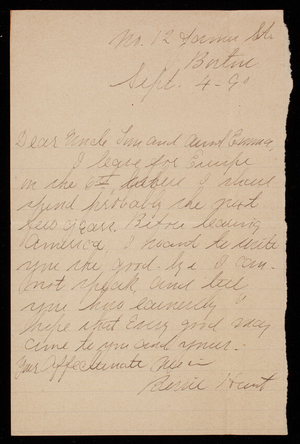 No. 12 Somer St.
Boston
Sept. 4-90
Dear Uncle Tom and Aunt Emma,
I leave for Europe
on the 6th, where I shall
spend probably the next
two years. Before leaving
America I want to write
you the good-bye I can-
not speak and tell
you how earnestly I
hope that Every good may
come to you and yours.-
Your Affectionate
Bessie Hunt